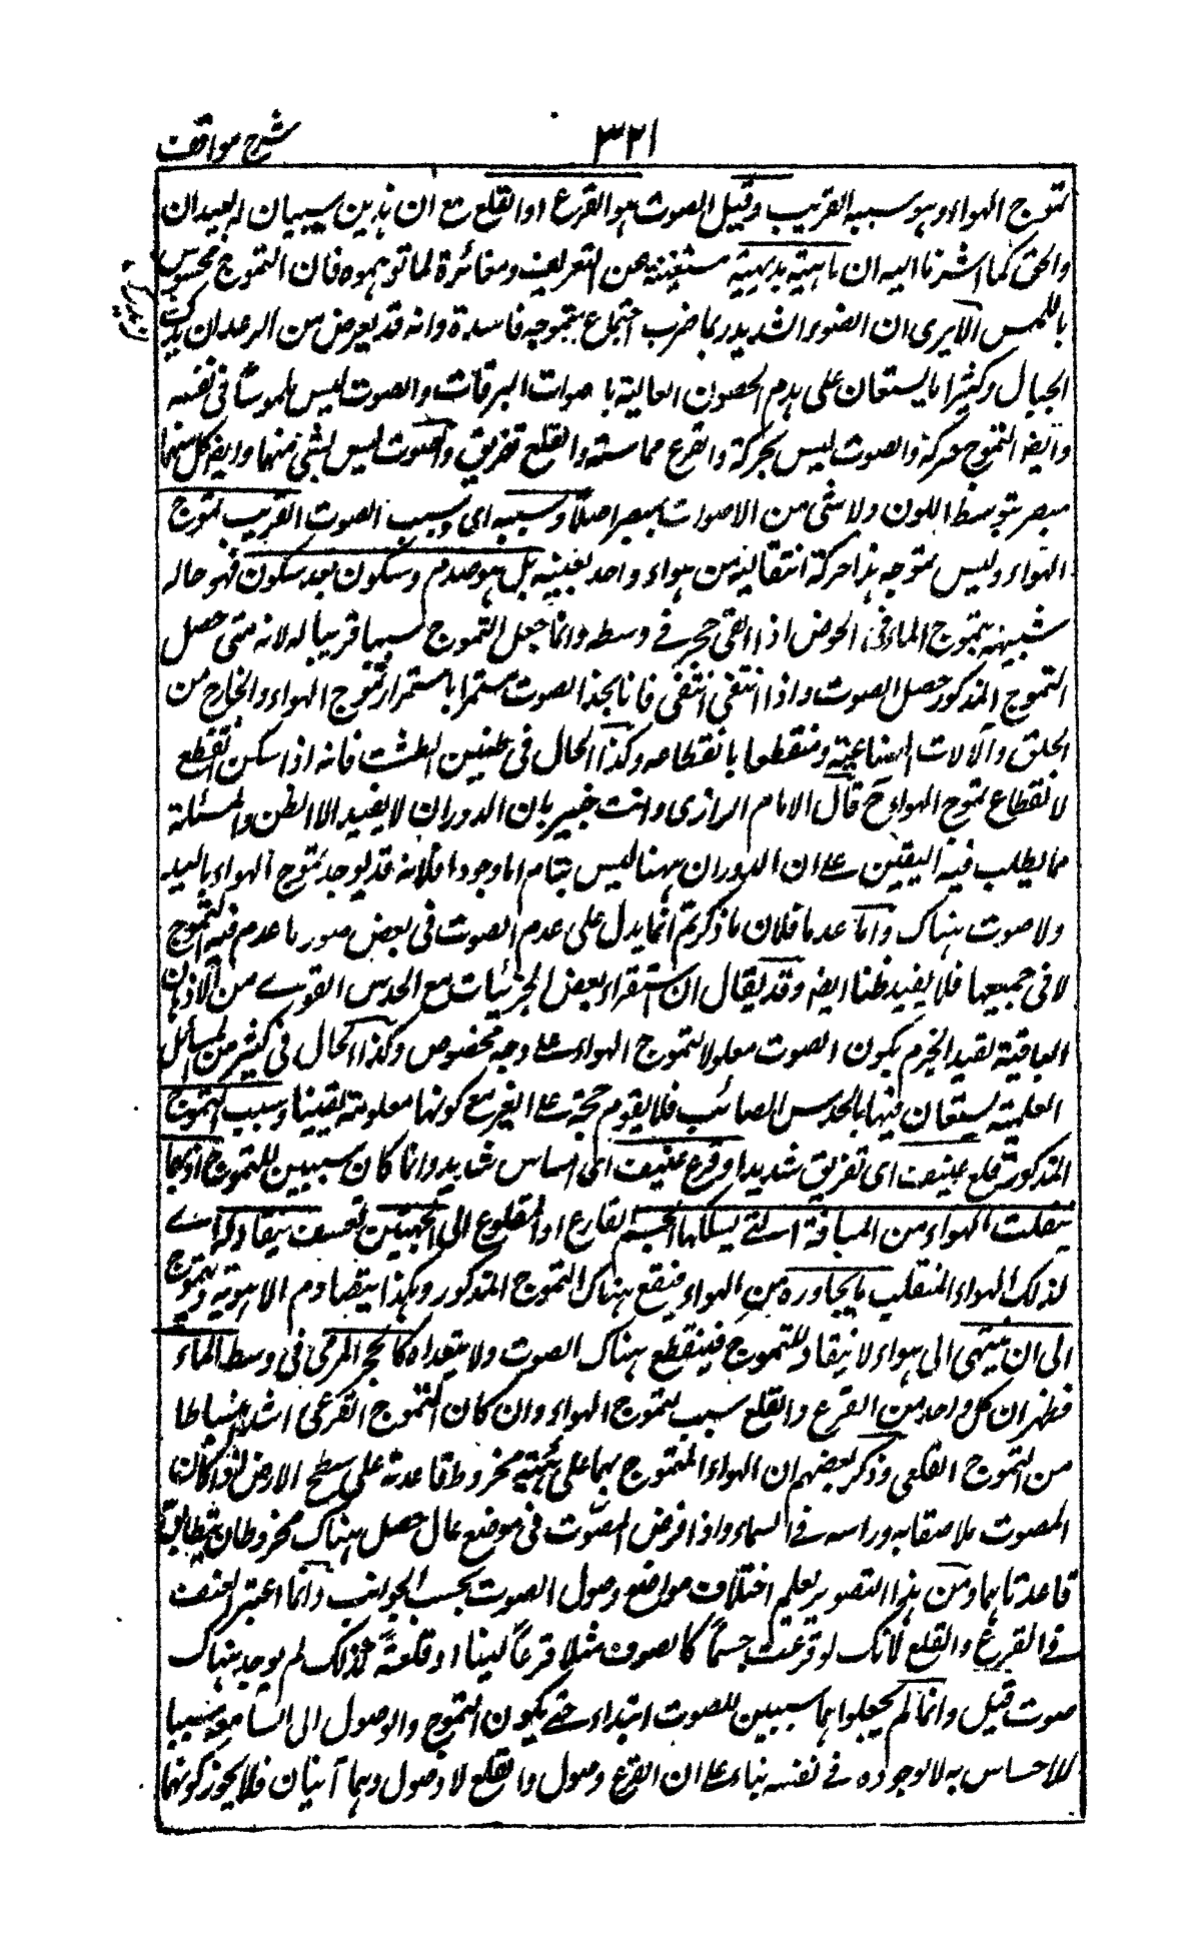 شرح مواقف
٣٢١
تموج الهواء وهو سببه القريب وقيل الصوت هو القرع او القلع مع ان هذين سببيان له بعيدان
والحق كما اشرنا اليه ان ماهيته بديهية مستغنية عن التعريف ومغائرة لما توهموه فان التموج محسوس
باللمس الا يرى ان الصوت الشديد ربما ضرب الصماخ بتموجه فافسده وانه قد يعرض من الرعد ان يدك
الجبال وكثيرا ما يستعان على هدم الحصون العالية باصوات البوقات والصوت ليس ملموسا في نفسه
وايضا التموج حركة والصوت ليس بحركة والقرع مماسة والقلع تفريق والصوت ليس لشئ منهما وايضا كل منهما
مبصر بتوسط اللون ولا شئ من الاصوات بمبصر اصلا وسببه اى وسبب الصوت القريب تموج
الهواء وليس تموجه هذا حركة انتقالية من هواء واحد بعينه بل هو صدم وسكون بعد سكون فهو حاله
شبيهة بتموج الماء فى الحوض اذا القى حجر فى وسطه وانما جعل التموج سببا قريبا له لانه متى حصل
التموج المذكور حصل الصوت واذا انتفى انتفى فانا نجد الصوت مستمرا باستمرار تموج الهواء والخارج من
الحلق والآلات الصناعية ومنقطعا بانقطاعه وكذا الحال فى طنين الطشت فانه اذا سكن انقطع
لانقطاع تموج الهواء ح قال الامام الرازى وانت خبير بان الدوران لا يفيد الا الظن والمسئلة
مما يطلب فيه اليقين على ان الدوران ههنا ليس بتام اما وجودا فلانه قد يوجد تموج الهواء باليد
ولا صوت هناك واما عدما فلان ما ذكرتم انما يدل على عدم الصوت فى بعض صور ما عدم فيه التموج
لا فى جميعها فلا يفيد ظنا ايضا وقد يقال ان استقراء بعض الجزئيات مع الحدس القوى من الاذهان
الثاقبة يفيد الجزم بكون الصوت معلولا لتموج الهواء على وجه مخصوص وكذا الحال فى كثير من المسائل
العلمية يستعان فيها بالحدس الصائب فلا يقوم حجة على الغير مع كونها معلومة يقينا وسبب التموج
المذكور قلع عنيف اى تفريق شديد او قرع عنيف اى امساس شديد وانما كان سببين للتموج اذ بهما
ينفلت الهواء من المسافة التى يسلكها الجسم القارع او المقلوع الى الجنبتين بعنف وينقاد له اى
لذلك الهواء المنقلب ما يجاوره من الهواء فيقع هناك التموج المذكور وهكذا يتصادم الاهوية ويتموج
الى ان ينتهى الى هواء لا ينقاد للتموج فينقطع هناك الصوت ولا يتعداه كالحجر المرمى فى وسط الماء
فظهر ان كل واحد من القرع والقلع سبب لتموج الهواء وان كان التموج القرعى اشد انبساطا
من التموج القلعى وذكر بعضهم ان الهواء المتموج بهما على هيئة مخروط قاعدته على سطح الارض اذا كان
المصوت ملاصقا به وراسه فى السماء واذا فرض المصوت فى موضع عال حصل هناك مخروطان يتطابق
قاعدتاهما ومن هذا التصوير يعلم اختلاف مواضع وصول الصوت بحسب الجوانب وانما اعتبر العنف
فى القرع والقلع لانك لو قرعت جسما كالصوف مثلا قرعا لينا او قلعته كذلك لم يوجد هناك
صوت قيل وانما لم يجعلوا هما سببين للصوت ابتداء حتى يكون التموج والوصول الى السامعة سببا
للاحساس به لا لوجوده فى نفسه بناء على ان القرع وصول والقلع لا وصول وهما آنيان فلا يجوز كونهما